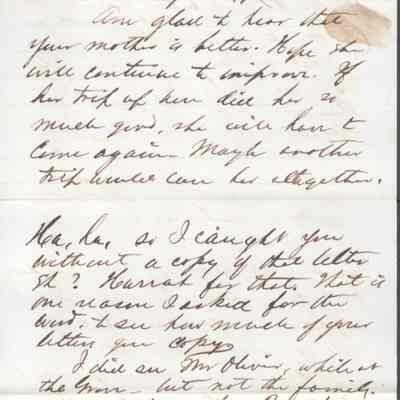 Am glad to hear that
your mother is better. Hope she
will continue to improve. If
her trip up here did her so
much good, she will have to
come again. Mayb another
trip would cure her altogether.
Ha, ha, so I caught you
without a copy of that letter
Eh? Hurrah for that. That is
one reason I asked for the
, to see how much of your
letters you copy.
I did see Mr Oliver, while at
the but not the family.